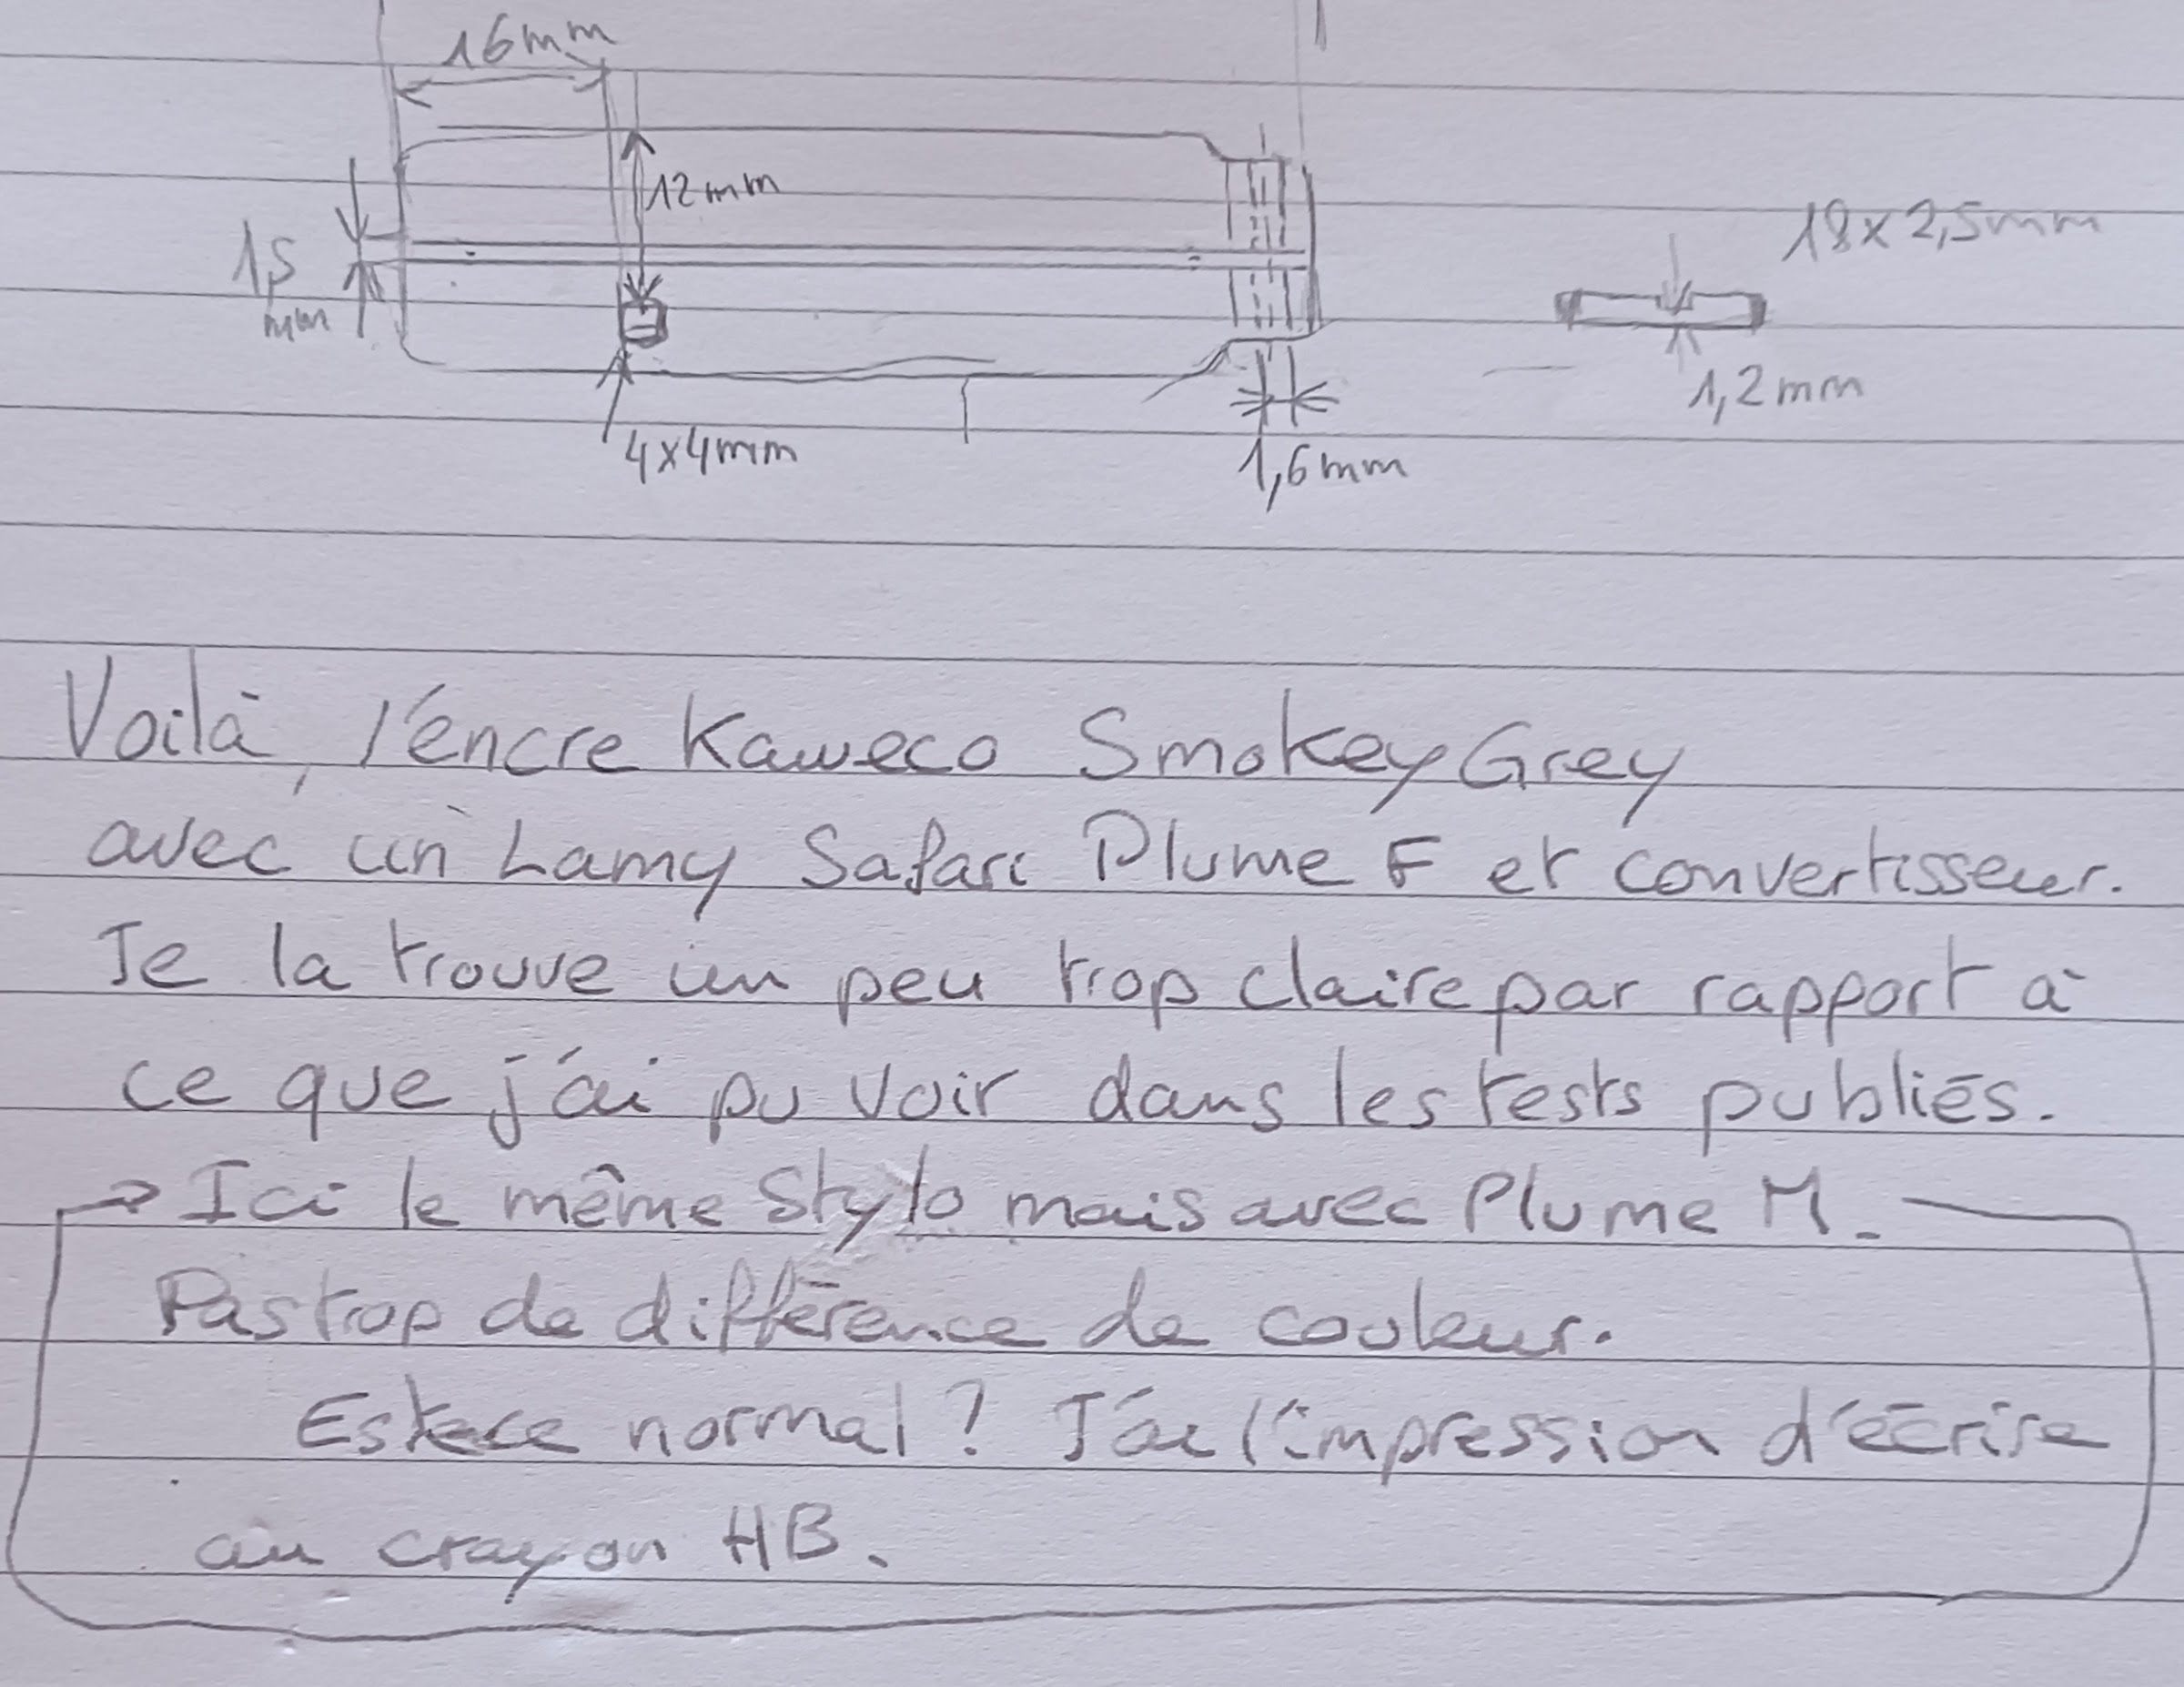 16mm
12mm
18x2,5mm
1,5
mm
1,2mm
4x4mm
1,6mm
Voilà, l'encre Kaweco Smokey Grey
avec un Lamy Safari Plume F et convertisseur.
Je la trouve un peu trop claire par rapport à
ce que j'ai pu voir dans les tests publiés.
→ Ici le même Stylo mais avec Plume M.
Pas trop de différence de couleur.
Estece normal ? J'ai l'impression d'écrire
au crayon HB.